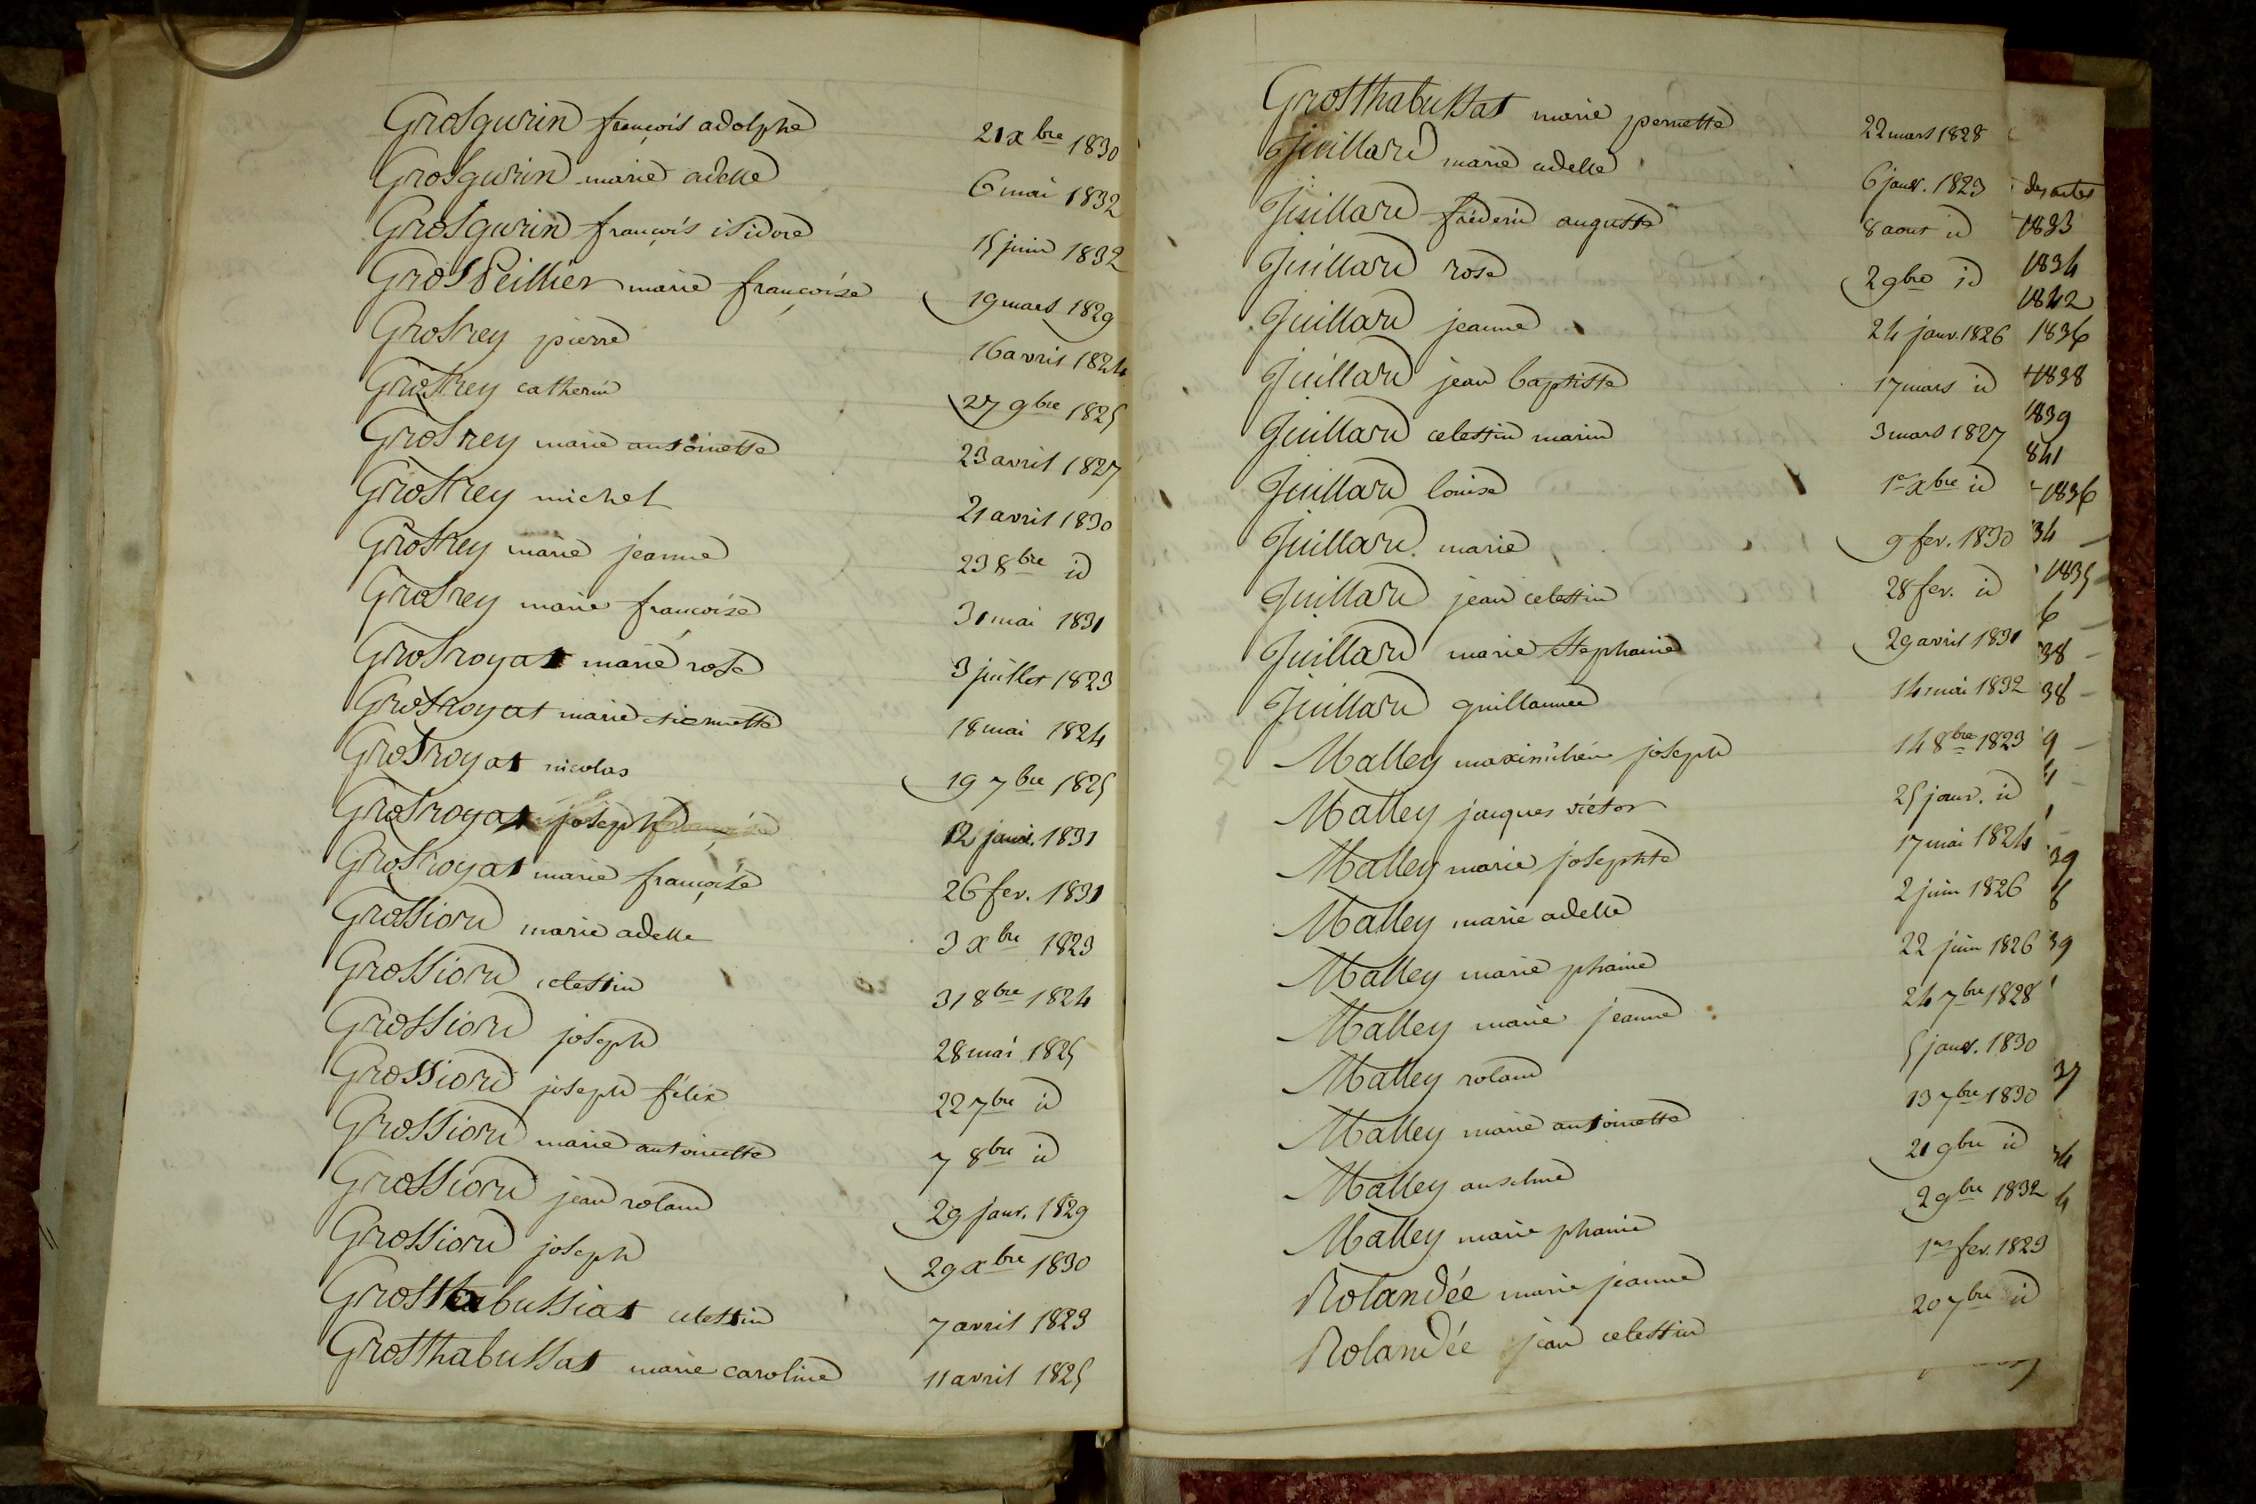 Grosgurin françois adolphe 21 xbre 1830
Grosgurin marie adelle 6 mai 1832
Grosgurin françois isidore 15 juin 1832
GrosPeillier marie françoise 19 mars 1829
Grosrey pierre 16 avril 1824
Grosrey catherin 27 9bre 1825
Grosrey marie antoinette 23 avril 1827
Grosrey michel 21 avril 1830
Grosrey marie jeanne 23 8bre id
Grosrey marie françoise 31 mai 1831
Grosroyat marie rose 3 juillet 1823
Grosroyat marie etiennette 18 mai 1824
Grosroyat nicolas 19 7bre 1825
Grosroyat joseph 12 janv. 1831
Grosroyat marie françoise 26 fev. 1831
Grossiord marie adelle 3 xbre 1823
Grossiord celestin 31 8bre 1824
Grossiord joseph 28 mai 1825
Grossiord joseph félix 22 7bre id
Grossiord marie antoinette 7 8bre id
Grossiord jean roland 29 janv. 1829
Grossiord joseph 29 xbre 1830
Grosthabussiat celestin 7 avril 1823
Grosthabussat marie caroline 11 avril 1825
Grosthabussat marie pernette 22 mars 1828
Juillard marie adelle 6 janv. 1823
Juillard fréderic auguste 8 aout id
Juillard rose 2 9bre id
Juillard jeanne 24 janv. 1826
Juillard jean baptiste 17 mars id
Juillard celestin marin 3 mars 1827
Juillard louise 1er xbre id
Juillard marie 9 fev. 1830
Juillard jean celestin 28 fev. id
Juillard marie Stephanie 29 avril 1831
Juillard guillaumee 14 mai 1832
Malley maximilien joseph 14 8bre 1823
Malley jacques victor 25 janv. id
Malley marie josephte 17 mai 1824
Malley marie adelle 2 juin 1826
Malley marie phanie 22 juin 1826
Malley marie jeanne 24 7bre 1828
Malley roland 5 janv. 1830
Malley marie antoinette 13 7bre 1830
Malley anselme 21 9bre id
Malley marie phanie 2 9bre 1832
Rolandée marie jeanne 1er fev. 1823
Rolandée jean celestin 20 7bre id
des actes
1833
1834
1842
1836
1838
1839
841
1836
34
1835
6
38
38
9
4
39
6
39
37
34
4